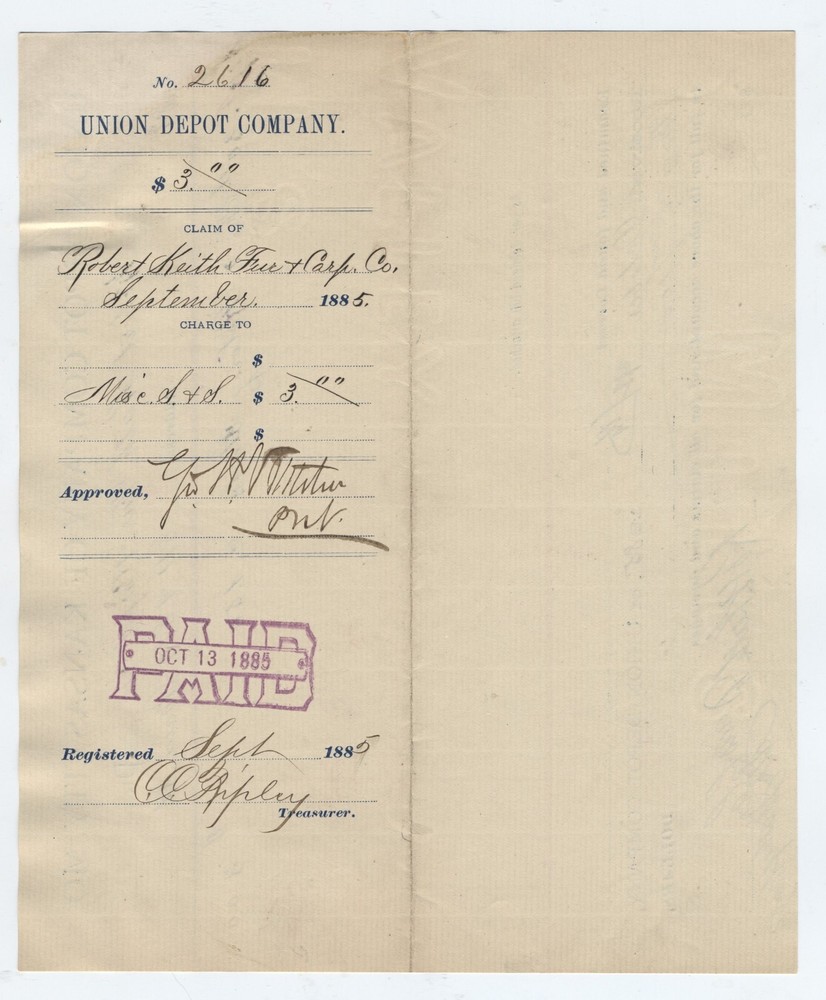 No. 2616
UNION DEPOT COMPANY.
$ 3.00
CLAIM OF
Robert Keith Fur & Carp. Co.
September. 1885.
CHARGE TO
$
Misc. S. & S. $ 3.00
$
Approved, Geo H
Registered Sept 1885
Treasurer.
PAID
OCT 13 1885